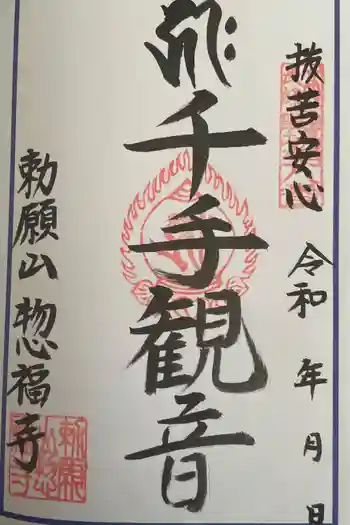 抜苦安心
令和 年 月 日
千手観音
勅願山 惣福寺